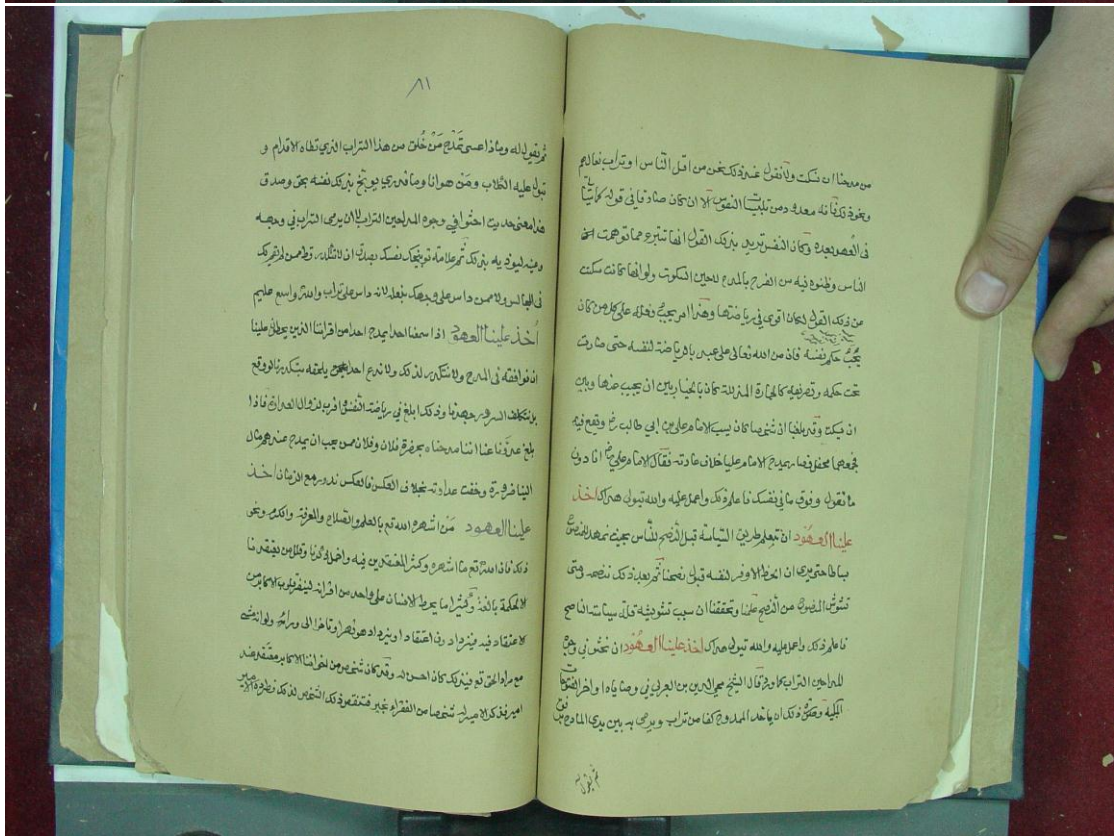 من مدحنا ان نسكت ولا نقول عند ذلك نحن من اقل الناس او تراب نعالهم
ونحو ذلك فانه معدود من تلبيسات النفوس الا ان كان صادقا في قوله كما يأتي
في العهد بعده وكان النفس تريد بذلك القول انها تتبرء مما توهمت
الناس وظنوه فيه من الفرح بالمدح لاحين السكوت ولو انها كانت سكتت
من ذلك القول لكان اقوى في رياضتها وهذا امر يجب فعله على كل من كان
تحت حكم نفسه فاذا من الله تعالى على عبد بالرياضة لنفسه حتى صارت
تحت حكمه وتصرفه كالحمارة المذللة كان بالخيار بين ان يجيب عنها وبين
ان يسكت وقد بلغنا ان شخصا كان يسب الامام علي بن ابي طالب رض ويقع فيه
فجمعهما محفل فصار يمدح الامام عليا خلاف عادته فقال الامام علي رض انا دون
ما تقول وفوق ما في نفسك فاعلم ذلك واعمل عليه والله يتولى هداك اخذ
علينا العهود ان نتعلم طريق السياسة قبل النصح للناس بحيث نمهد للمنصوح
بساطا حتى يرى ان الحظ الاوفر لنفسه قبول نصحنا ثم بعد ذلك ننصحه ومتى
تشوش المنصوح من النصح علمنا وتحققنا ان سبب تشويشه قلة سياسة الناصح
فاعلم ذلك واعمل عليه والله يتولى هداك اخذ علينا العهود ان نحثى في وجوه
المداحين التراب كما ورد قال الشيخ محيي الدين بن العربي في وصاياه اواخر الفتوحات
المكية وصفة ذلك ان ياخذ الممدوح كفا من تراب ويرمي به بين يدي المادح من فوق
ثم يقول له
٨١
ثم يقول له وماذا عسى تمدح من خلق من هذا التراب الذي تطاه الاقدام و
تبول عليه الكلاب ومن هو انا وما قدري يوبخ بذلك نفسه بحق وصدق
هذا معنى حديث احثوا في وجوه المداحين التراب لا ان يرمى التراب في وجهه
وعينه ليوذيه بذلك ثم علامة توبيخك نفسك بصدق ان لا تتكدر قط ممن لم
في المجالس ولا ممن داس على وجهك بنعله لانه داس على تراب والله واسع عليم
اخذ علينا العهود اذا سمعنا احدا يمدح احدا من اقراننا الذين يحطون علينا
ان نوافقه في المدح ولا نتكدر لذلك ولا ندع احدا يلحقه بتكديرنا
بل نتكلف السرور جهدنا وذلك ابلغ في رياضة النفس واقرب لزوال العداوة فاذا
بلغ عدونا عنا اننا مدحناه بحضرة فلان وفلان ممن يحب ان يمدح عندهم مال
الينا ضرورة وخفت عداوته بخلاف العكس فالعكس ندور مع الزمان اخذ
علينا العهود من اشهره الله تع بالعلم والصلاح والمعرفة والكرم ونحو
ذلك فاذا الله تع ما اشهره وكثر المعتقدين فيه
لا لحكمة بالغة وكثيرا ما يحط الانسان على واحد من اقرانه لينفر قلوب الاكابر من
الاعتقاد فيه فيزدادون اعتقادا ويزداد هو نفرا وتاخرا الى ورائه ولو انه مشى
مع مراد الحق تع فيه لكان احسن له وقد كان شخص من اخواننا الاكابر معتقد عند
امير فذكر الامير له شخصا من الفقراء بخير فتنقص ذلك الشخص لذلك فطرده الامير